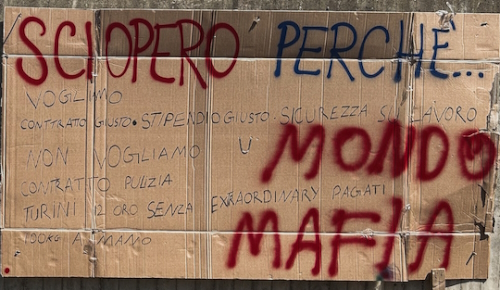 SCIOPERO' PERCHÈ...
VOGLIAMO
CONTTRATO GIUSTO. STIPENDIO GIUSTO. SICUREZZA SU LAVORO
NON VOGLIAMO
CONTRATTO PULIZIA
TURINI 12 ORO SENZA EXRAORDINARY PAGATI
190KG A MAMO
MONDO
MAFIA